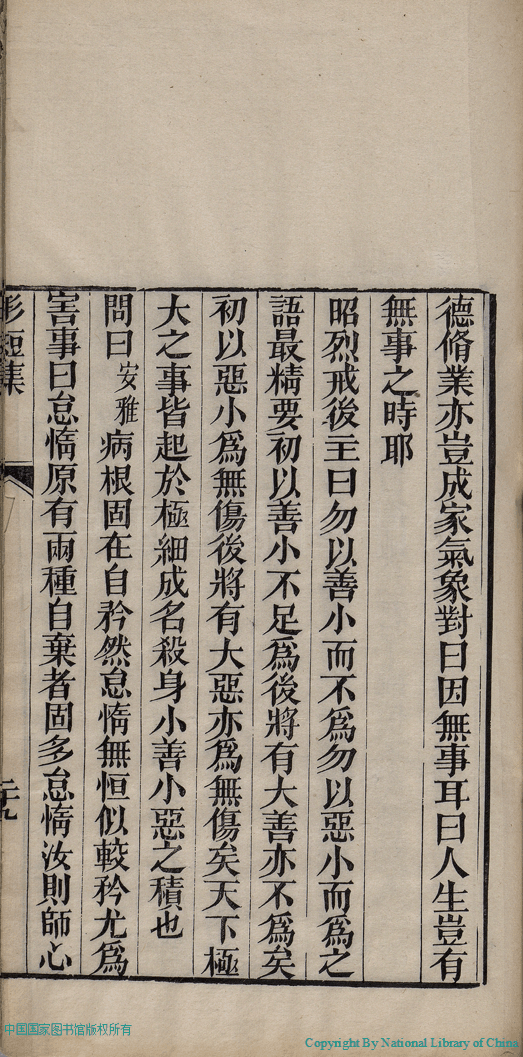 德脩業亦豈成家氣象對曰因無事耳曰人生豈有
無事之時耶
昭烈戒後主曰勿以善小而不為勿以惡小而為之
語最精要初以善小不足為後將有大善亦不為矣
初以惡小為無傷後將有大惡亦為無傷矣天下極
大之事皆起於極細成名殺身小善小惡之積也
問曰安雅病根固在自矜然怠惰無恒似較矜尤為
害事曰怠惰原有兩種自棄者固多怠惰汝則師心
集
二十九
中国国家图书馆版权所有
Copyright By National Library of China